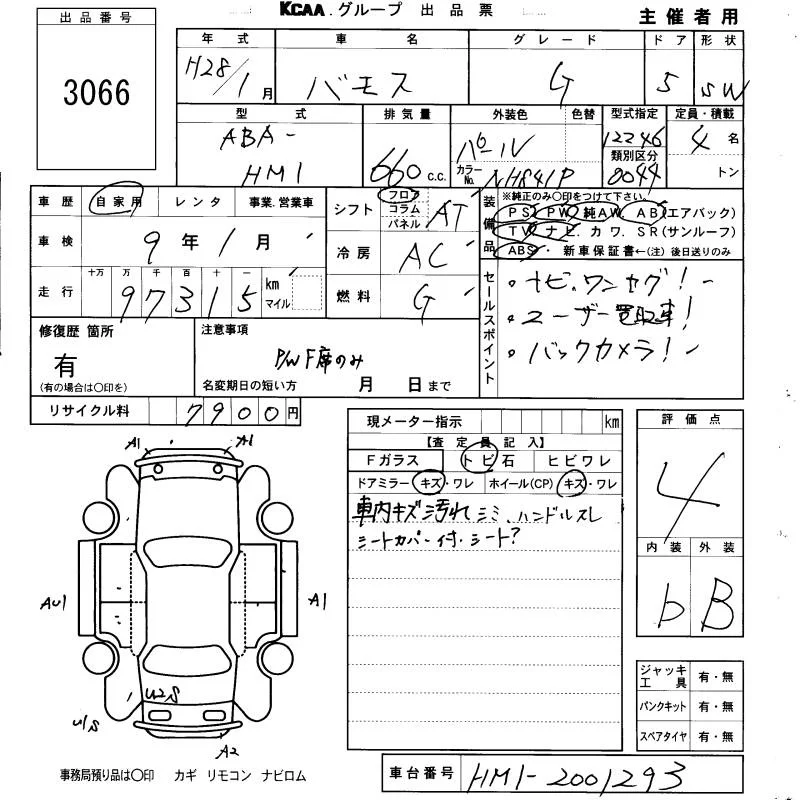 KCAA.グループ 出品票
主催者用
出品番号
3066
年式 車名 グレード ドア 形状
H28/1月 バモス G 5 SW
型式 排気量 外装色 色替 型式指定 定員・積載
ABA-
HM1
660 c.c.
パール
カラーNo. NH841P
12246
類別区分
0044
4名
トン
車歴 自家用 レンタ 事業.営業車
車検 9年1月
十万 万 千 百 十 一
走行 97315 km マイル
シフト フロア コラム パネル AT
冷房 AC
燃料 G
装備品
※純正のみ〇印をつけて下さい。
PS PW 純AW AB(エアバック)
TV ナビ.カワ.SR(サンルーフ)
ABS・新車保証書←(注)後日送りのみ
セールスポイント
・ナビ.ワンセグ!
・ユーザー買取車!
・バックカメラ!
修復歴 箇所
有
(有の場合は〇印を)
注意事項
P/W F席のみ
名変期日の短い方 月 日まで
リサイクル料 7900円
現メーター指示 km
【査定員記入】
Fガラス トビ石 ヒビワレ
ドアミラー キズ・ワレ ホイール(CP) キズ・ワレ
車内キズ汚れシミ、ハンドルスレ
シートカバー付.シート?
評価点
4
内装 外装
b B
A1 A1
AU1 A1
U2S
U1S
A2
ジャッキ工具 有・無
パンクキット 有・無
スペアタイヤ 有・無
事務局預り品は〇印 カギ リモコン ナビロム
車台番号 HM1-2001293